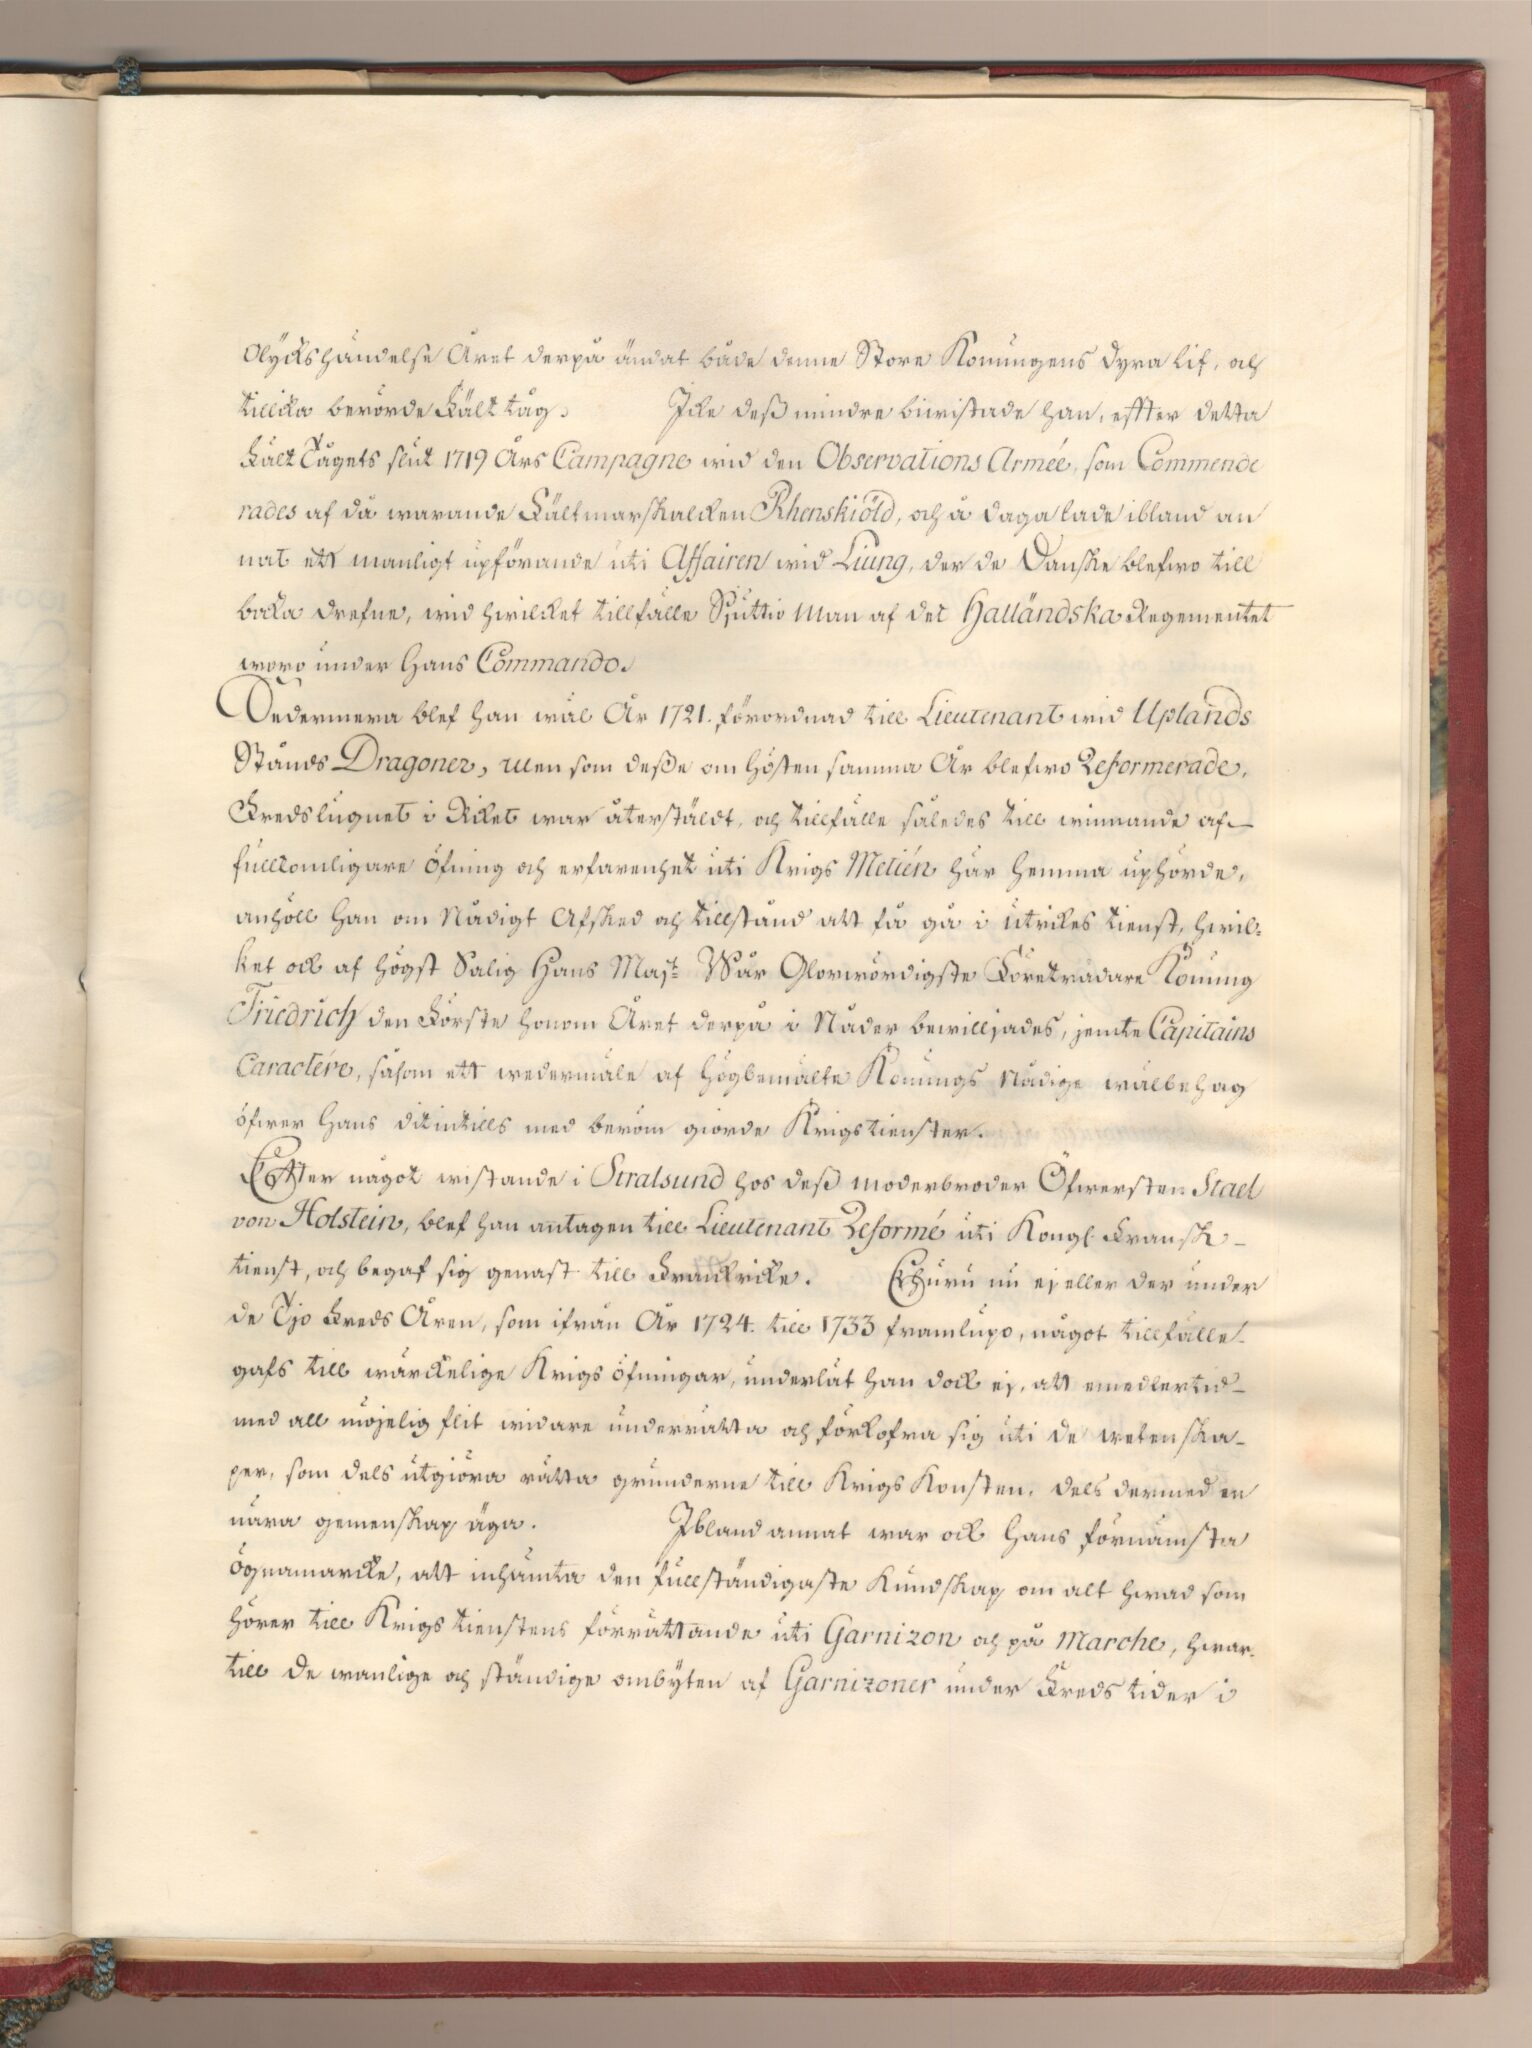 olyckshändelse Året derpå ändat både denne Store Konungens dyra lif, och
tillika berörde Fält tåg. Icke deß mindre biwistade han, effter detta
Fält Tågets slut 1719 Års Campagne wid den Observations Armée, som Commende
rades af då warande Fältmarskalcken Rhenskiöld, och å daga lade ibland an
nat ett manligt upförande uti Affairen wid Liung, der de Danske blefwo till
baka drefne, wid hwilcket tillfälle Siuttio Man af det Halländska Regementet
woro under Hans Commando.
Sedermera blef han wäl År 1721. förordnad till Lieutenant wid Uplands
Stånds Dragoner, men som deße om hösten samma År blefwo Reformerade,
Fredslugnet i Riket war återstäldt, och tillfälle således till winnande af
fullkomligare öfning och erfarenhet uti Krigs Metién här hemma uphörde,
anhöll han om Nådigt Afsked och tillstånd att få gå i utrikes tienst, hwil-
ket ock af högst Salig Hans Majt Wår Glorwördigste Företrädare Konung
Friedrich den Förste honom Året derpå i Nåder bewilljades, jemte Capitains
Caractére, såsom ett wedermäle af högbemälte Konungs Nådige wälbehag
öfwer Hans dittintills med beröm giorde Krigstienster.
Efter något wistande i Stralsund hos deß moderbroder Öfwersten Stael
von Holstein, blef han antagen till Lieutenant Reformé uti Kongl. Fransk
tienst, och begaf sig genast till Frankrike. Ehuru nu ej eller der under
de Tjo Freds Åren, som ifrån År 1724. till 1733 framlupo, något tillfälle
gafs till wärckelige Krigs öfningar, underlät han dock ej, att emedlertid
med all möjelig flit widare underrätta och förkofra sig uti de wetenska-
per, som dels utgiöra rätta grunderne till Krigs Konsten, dels dermed en
nära gemenskap äga. Ibland annat war ock Hans förnämsta
ögnamärcke, att inhämta den fullständigaste Kundskap om alt hwad som
hörer till Krigs tienstens förrättande uti Garnizon och på Marche, hwar-
till de wanlige och ständige ombyten af Garnizoner under Freds tider i